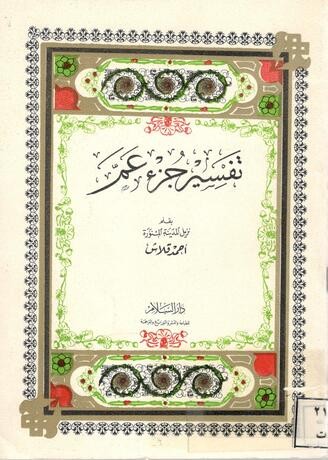 تفسير جزء عم
بقلم
نزيل المدينة المنورة
أحمد قلاش
دار السلام
للطباعة والنشر والتوزيع والترجمة
٢١